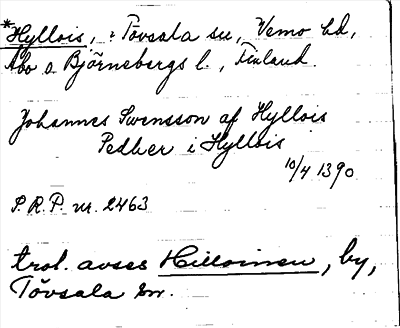 *Hyllois, i Tövsala sn, Vemo hd,
Åbo o Björneborgs l., Finland.
Johannes Swensson af Hyllois
Pedher i Hyllois
10/4 1390
S.R.P. nr. 2463
trol. avses Hilloinen, by,
Tövsala sn.